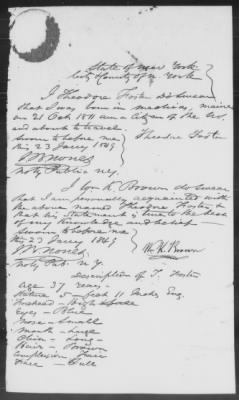 State of New York
City & County of N York
I Theodore Foster do swear
that I was born in Machias, Maine
on 21 Oct 1811 am a Citizen of the US.
and about to travel.
Sworn to before me
this 23 Jany 1849
Theodore Foster
JB Nones
Noty Public N.Y.
I Wm K. Brown do swear
that I am personally acquainted with
the above named Theodore Foster, &
that his statement is true to the best
of my knowledge and belief
Sworn to before me
this 23 Jany 1849
Wm K. Brown
JB Nones
Noty Pub. N.Y.
Description of T. Foster
Age 37 years
Stature 5 feet 11 Inches Eng.
Forehead - High
Eyes - Blue
Nose - Small
Mouth - Large
Chin - Long
Hair - Brown
Complexion Fair
Face - Full